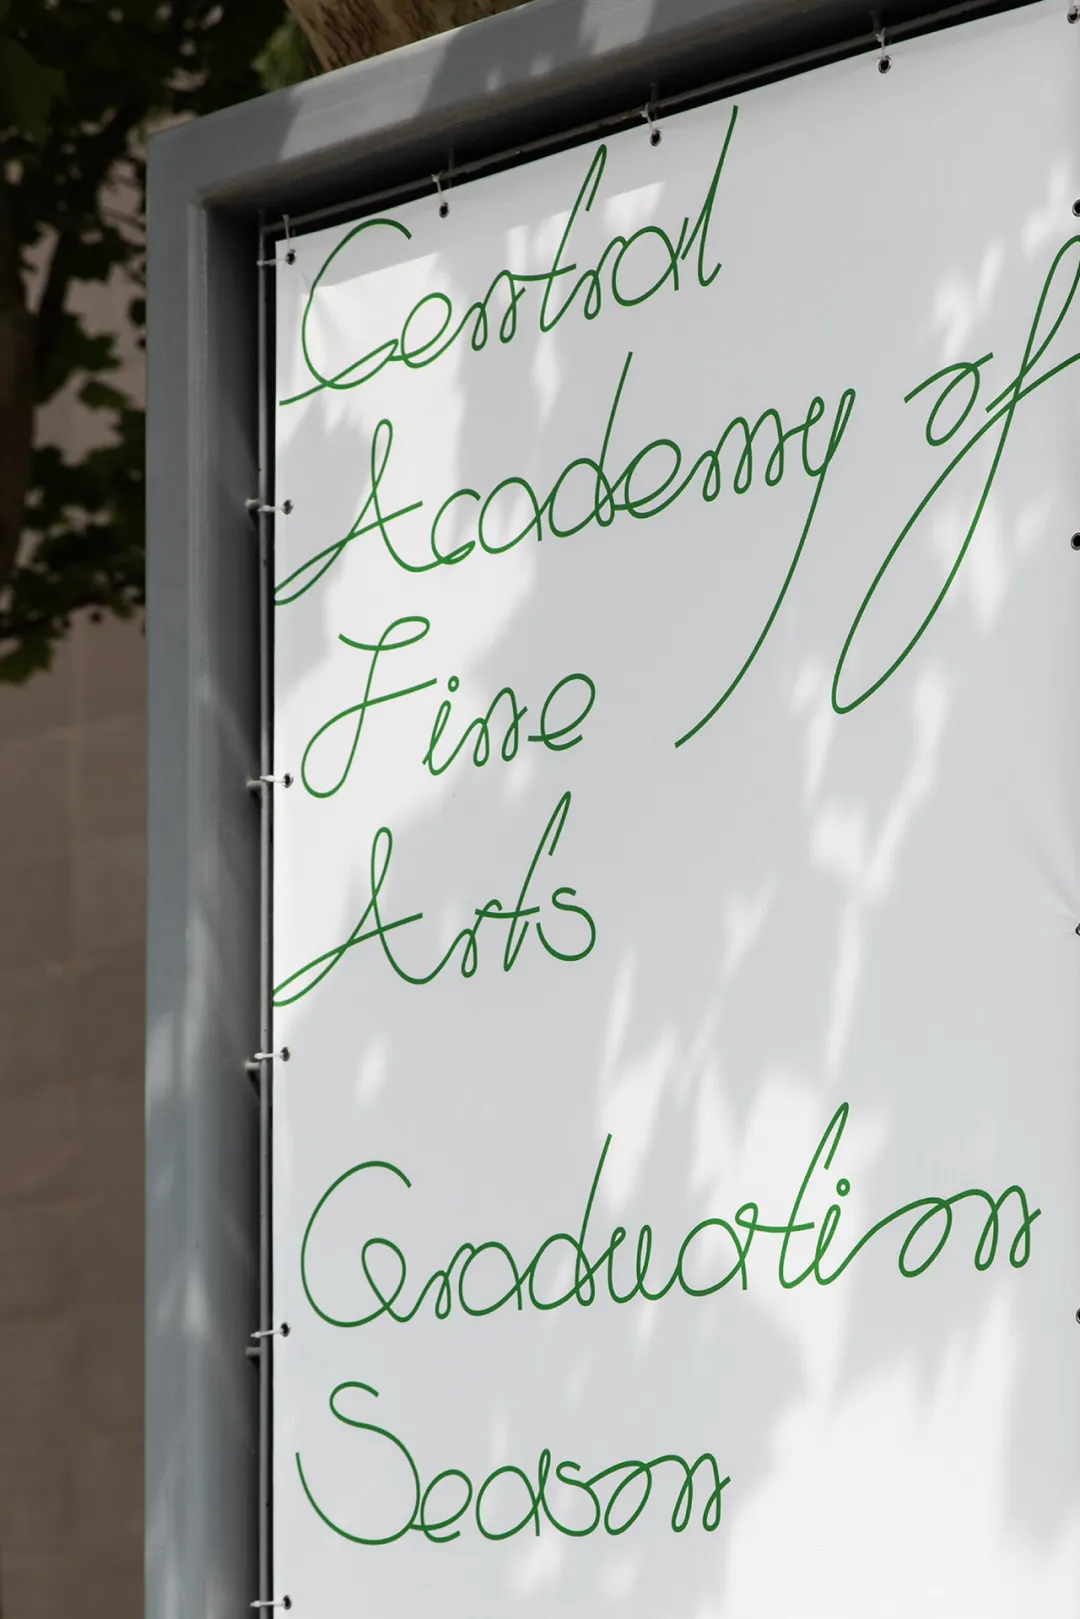 Central
Academy of
Fine
Arts
Graduation
Season